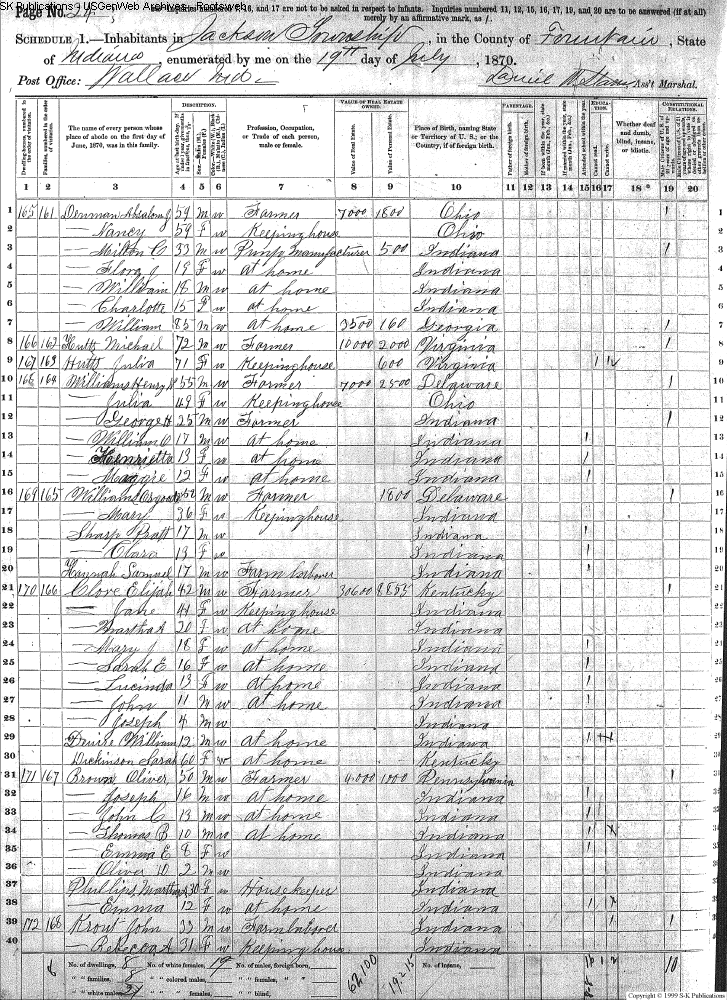 SK Publications - USGenWeb Archives - Rootsweb
Page No. 24
Inquiries numbered 7, 16, and 17 are not to be asked in respect to infants. Inquiries numbered 11, 12, 15, 16, 17, 19, and 20 are to be answered (if at all)
merely by an affirmative mark, as /.
Schedule 1.—Inhabitants in Jackson Township, in the County of Fountain, State
of Indiana, enumerated by me on the 19th day of July, 1870.
Post Office: Wallace Ind. Ass't Marshal.
DESCRIPTION. VALUE OF REAL ESTATE OWNED. PARENTAGE. EDUCATION. CONSTITUTIONAL RELATIONS.
The name of every person whose place of abode on the first day of June, 1870, was in this family.
Profession, Occupation, or Trade of each person, male or female.
Value of Real Estate. Value of Personal Estate.
Place of Birth, naming State or Territory of U. S.; or the Country, if of foreign birth.
Whether deaf and dumb, blind, insane, or idiotic.
1 2 3 4 5 6 7 8 9 10 11 12 13 14 15 16 17 18 19 20
1 165 161 Denman 59 m w Farmer 7000 1800 Ohio 1
2 — Nancy 59 F w Keeping house Ohio 2
3 — Milton C 33 m w Pump manufacturer 500 Indiana 3
4 — Flora J 19 F w at home Indiana 4
5 — William 18 m w at home Indiana 5
6 — Charlotte 15 F w at home Indiana 6
7 — William 85 m w at home 3500 160 Georgia 7
8 166 162 Hutts Michael 72 m w Farmer 10000 2000 Virginia 8
9 167 163 Hutts Julia 71 F w Keeping house 600 Virginia 9
10 168 164 Williams Henry 55 m w Farmer 7000 2500 Delaware 10
11 — Julia 49 F w Keeping house Ohio 11
12 — George H 25 m w Farmer Indiana 12
13 — William C 17 m w at home Indiana 13
14 — Henrietta 13 F w at home Indiana 14
15 — Maggie 12 F w at home Indiana 15
16 169 165 Williams 52 m w Farmer 1800 Delaware 16
17 — Mary 36 F w Keeping house Indiana 17
18 Sharp Pratt 17 m w Indiana 18
19 — Clara 13 F w Indiana 19
20 Hannah Samuel 17 m w Farm laborer Indiana 20
21 170 166 Clore Elijah 42 m w Farmer 30600 8855 Kentucky 21
22 — Jane 41 F w Keeping house Indiana 22
23 — Martha A 20 F w at home Indiana 23
24 — Mary J 18 F w at home Indiana 24
25 — Sarah E 16 F w at home Indiana 25
26 — Lucinda 13 F w at home Indiana 26
27 — John 11 m w at home Indiana 27
28 — Joseph 4 m w Indiana 28
29 William 12 m w at home Indiana 29
30 Dickinson Sarah 60 F w at home Kentucky 30
31 171 167 Brown Oliver 50 m w Farmer 4000 1000 Pennsylvania 31
32 — Joseph 16 m w at home Indiana 32
33 — John C 13 m w at home Indiana 33
34 — Thomas B 10 m w at home Indiana 34
35 — Emma E 8 F w Indiana 35
36 — Oliver 2 m w Indiana 36
37 Phillips Martha 30 F w Housekeeper Indiana 37
38 — Emma 12 F w at home Indiana 38
39 172 168 Krout John 33 m w Farm laborer Indiana 39
40 — Rebecca A 31 F w Keeping house Indiana 40
No. of dwellings, 8 No. of white females, 19 No. of males, foreign born, No. of insane,
" " families, 8 " " colored males, " " females, "
" " white males, " " females, " " blind, 10
Copyright © 1999 S-K Publications